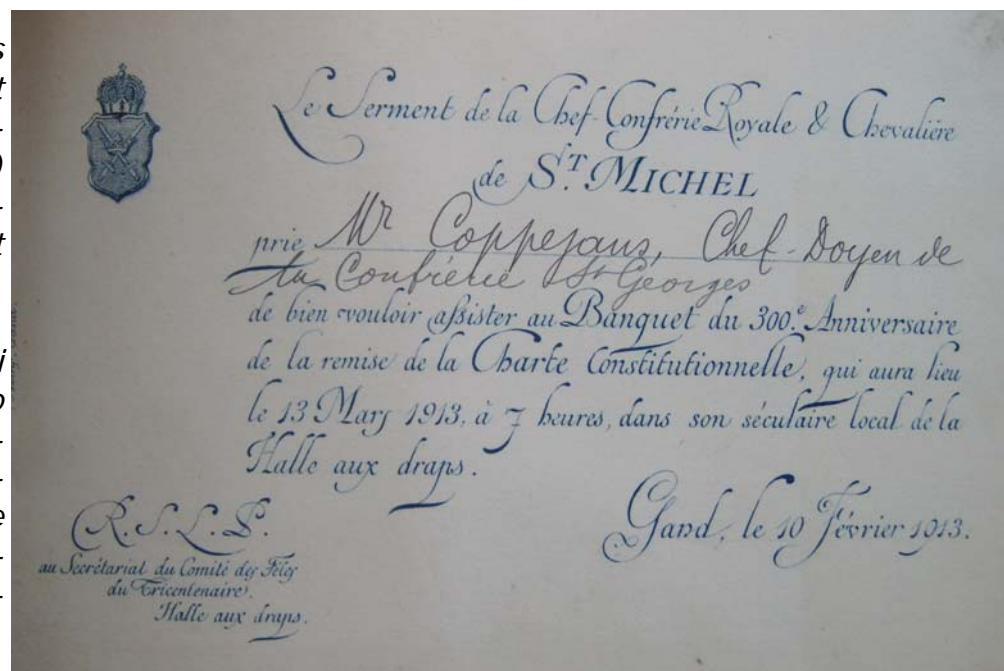 Le Serment de la Chef-Confrérie Royale & Chevalière
de S.T MICHEL
prie Mr Coppejans, Chef-Doyen de
la Confrérie St Georges
de bien vouloir assister au Banquet du 300.e Anniversaire
de la remise de la Charte Constitutionnelle, qui aura lieu
le 13 Mars 1913, à 7 heures, dans son séculaire local de la
Halle aux draps.
Gand, le 10 Février 1913.
R.S.L.P.
au Secrétariat du Comité des Fêtes
du Tricentenaire.
Halle aux draps.